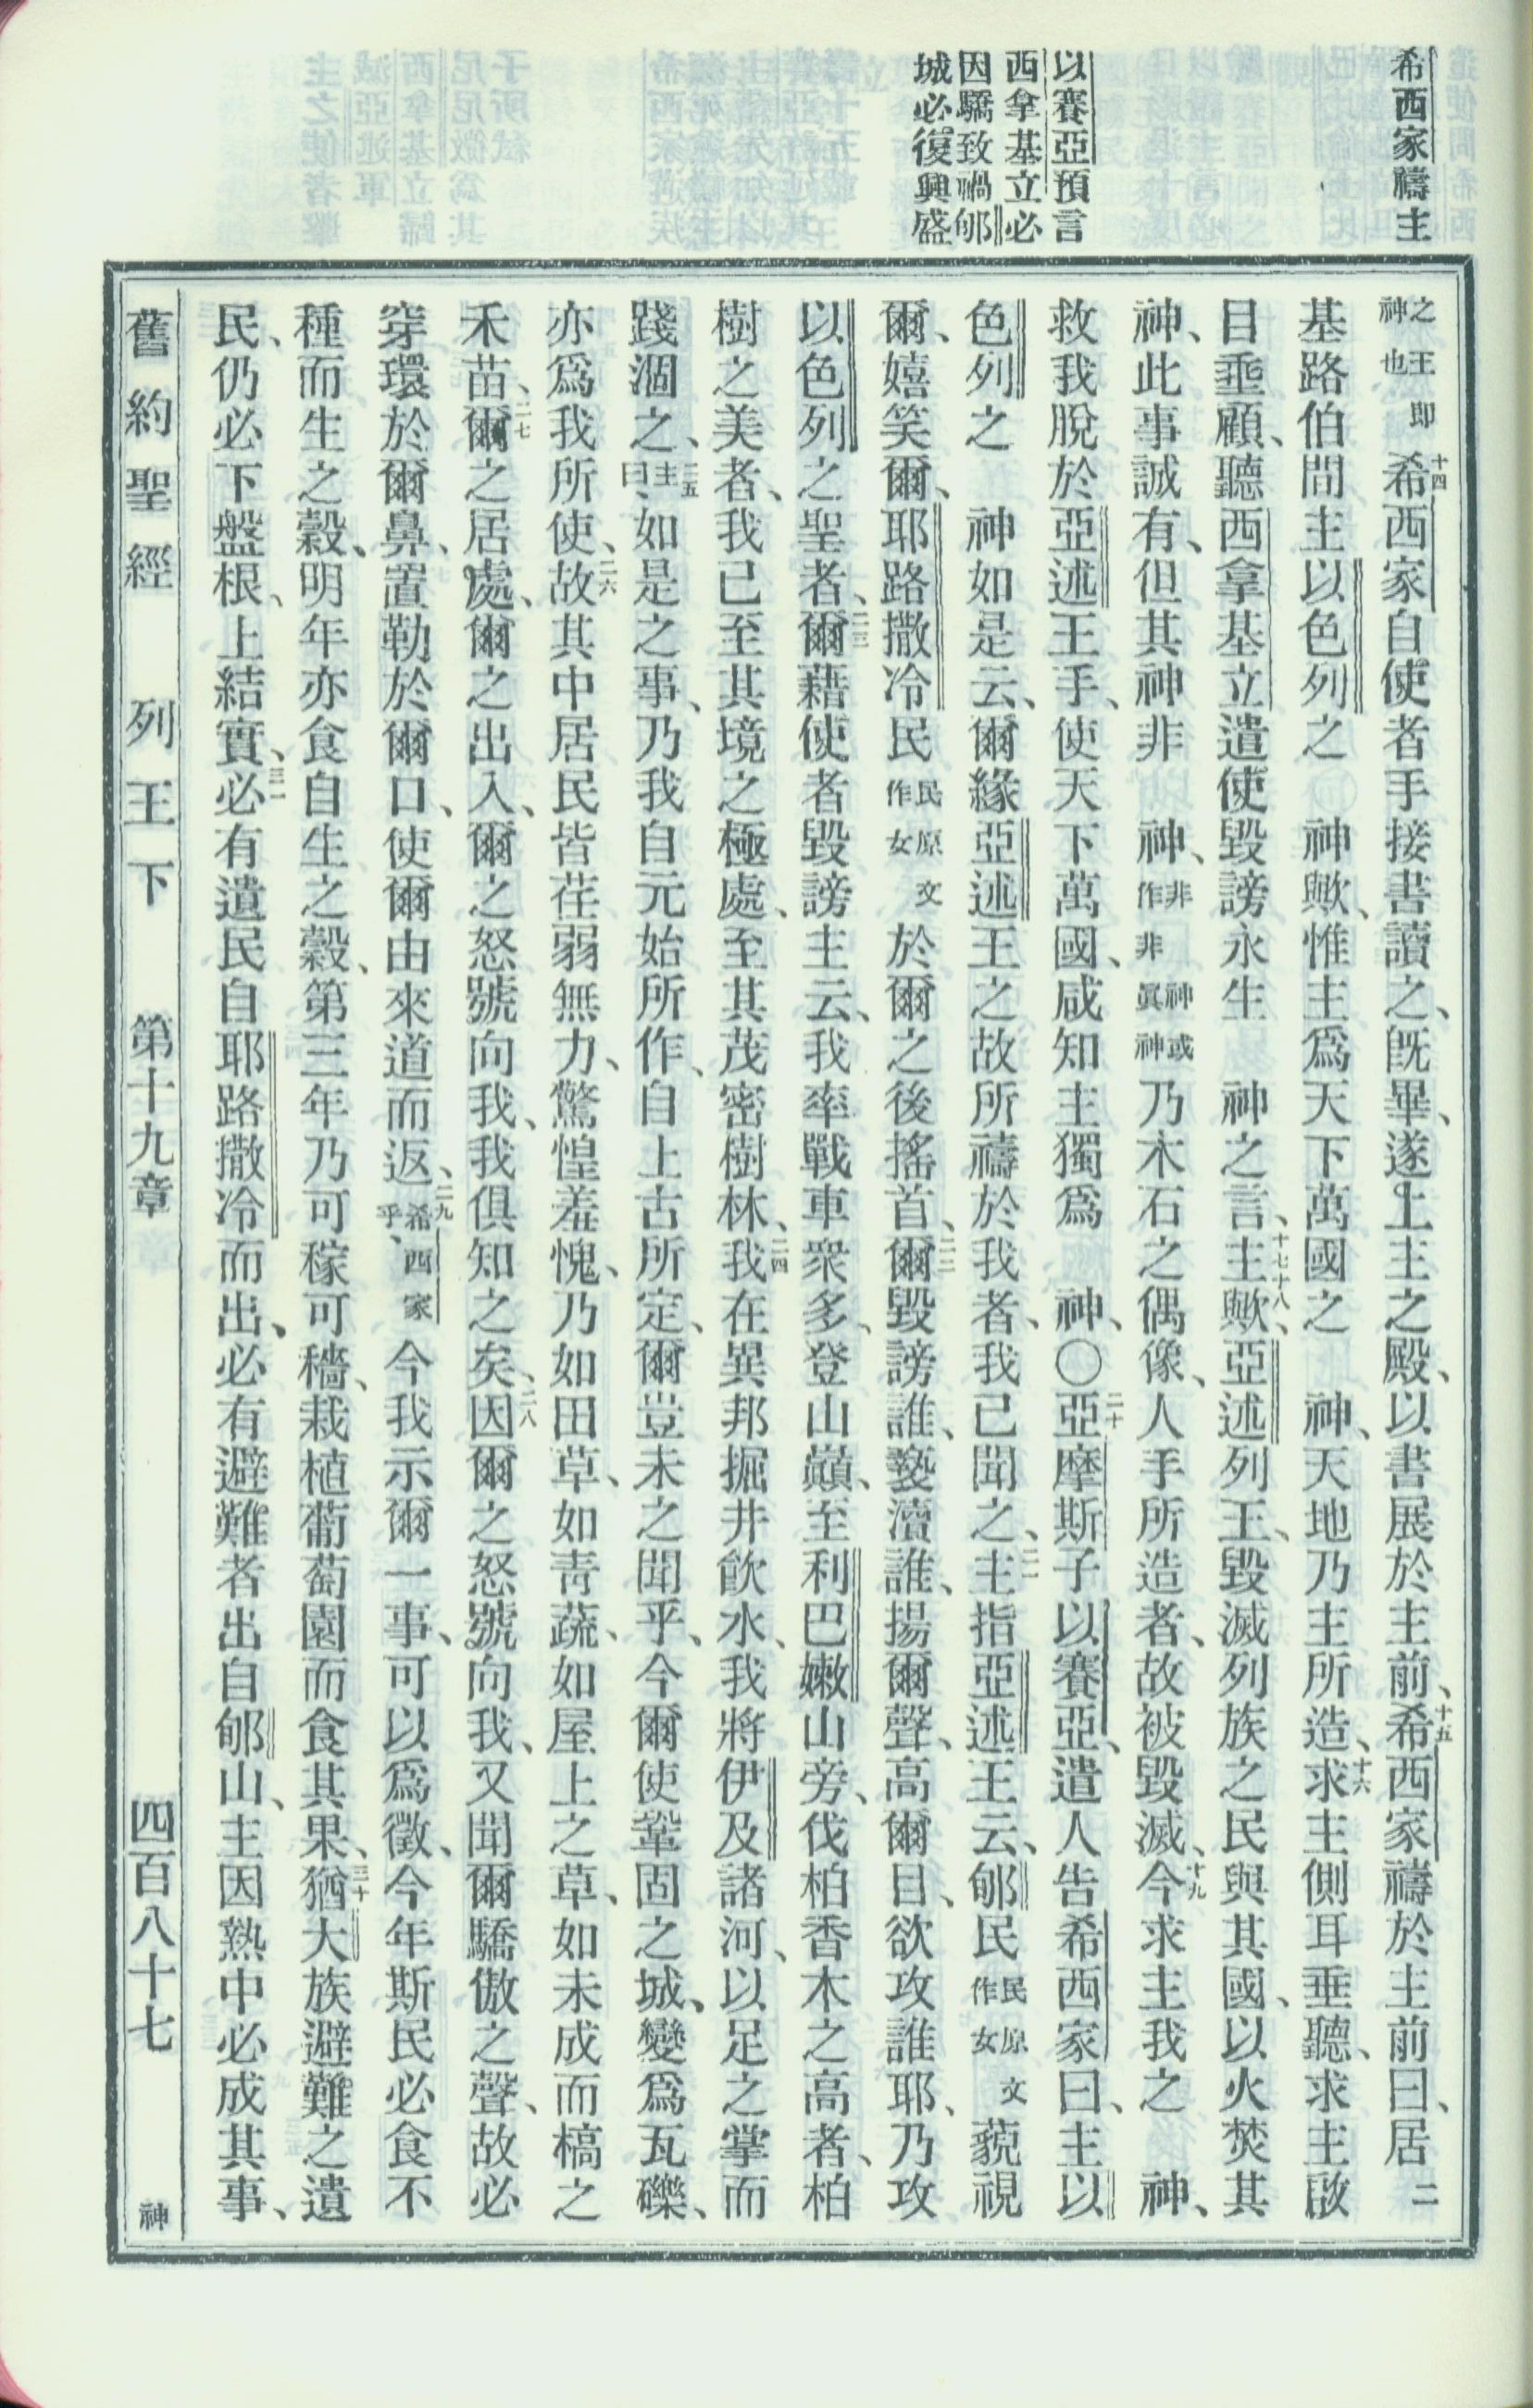 希西家禱主
以賽亞預言
西拿基立必
因驕致禍郇
城必復興盛
之王即神也十四希西家自使者手接書讀之、既畢、遂上主之殿、以書展於主前、十五希西家禱於主前曰、居二
基路伯間主以色列之 神歟、惟主爲天下萬國之 神、天地乃主所造、十六求主側耳垂聽、求主啟
目垂顧、聽西拿基立遣使毀謗永生 神之言、十七十八主歟、亞述列王、毀滅列族之民與其國、以火焚其
神、此事誠有、但其神非 神、非神或作非眞神乃木石之偶像、人手所造者、故被毀滅、十九今求主我之 神、
救我脫於亞述王手、使天下萬國、咸知主獨爲 神、〇二十亞摩斯子以賽亞、遣人告希西家曰、主以
色列之 神如是云、爾緣亞述王之故所禱於我者、我已聞之、二一主指亞述王云、郇民民原文作女藐視
爾、嬉笑爾、耶路撒冷民民原文作女於爾之後搖首、二二爾毀謗誰、褻瀆誰、揚爾聲、高爾目、欲攻誰耶、乃攻
以色列之聖者、二三爾藉使者毀謗主云、我率戰車衆多、登山巔、至利巴嫩山旁、伐柏香木之高者、柏
樹之美者、我已至其境之極處、至其茂密樹林、二四我在異邦掘井飲水、我將伊及諸河、以足之掌而
踐涸之、二五主曰、如是之事、乃我自元始所作、自上古所定、爾豈未之聞乎、今爾使鞏固之城、變爲瓦礫、
亦爲我所使、二六故其中居民皆荏弱無力、驚惶羞愧、乃如田草、如靑蔬、如屋上之草、如未成而槁之
禾苗、二七爾之居處、爾之出入、爾之怒號向我、我俱知之矣、二八因爾之怒號向我、又聞爾驕傲之聲、故必
穿環於爾鼻、置勒於爾口、使爾由來道而返、二九希西家乎、今我示爾一事、可以爲徵、今年斯民必食不
種而生之穀、明年亦食自生之穀、第三年乃可稼可穡、栽植葡萄園而食其果、三十猶大族避難之遺
民、仍必下盤根、上結實、三一必有遺民自耶路撒冷而出、必有避難者出自郇山、主因熱中必成其事、
舊約聖經 列王下 第十九章 四百八十七 神